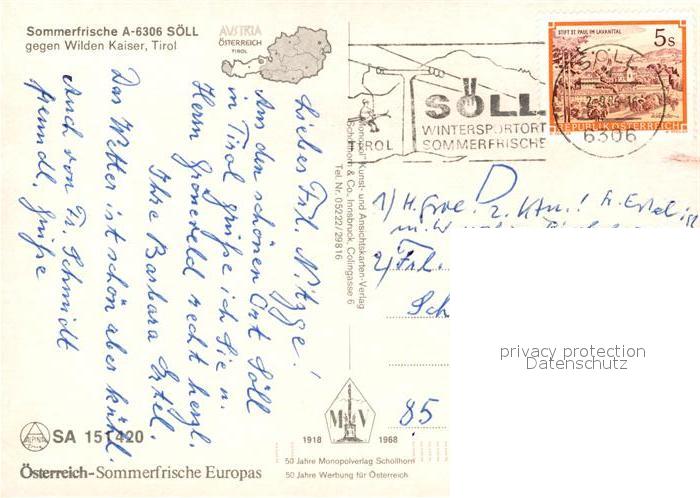 Sommerfrische A-6306 SÖLL
gegen Wilden Kaiser, Tirol
AUSTRIA
ÖSTERREICH
TIROL
Liebes Frl. Nitzge!
Aus dem schönen Ort Söll
in Tirol grüße ich Sie u.
Herrn Groneveld recht herzl.
Ihre Barbara Ertel.
Das Wetter ist schön aber kühl.
Auch von Fr. Schmidt
freundl. Grüße
ALPINA
SA 151420
Österreich-Sommerfrische Europas
"Monopol" Kunst- und Ansichtskarten-Verlag
Schöllhorn & Co., Innsbruck, Colingasse 6
Tel. Nr. 05222/29816
MV
1918 1968
50 Jahre Monopolverlag Schöllhorn
50 Jahre Werbung für Österreich
TIROL
SÖLL
WINTERSPORTORT
SOMMERFRISCHE
STIFT ST. PAUL IM LAVANTTAL
5s
REPUBLIK ÖSTERREICH
SÖLL
6306
D
1) H. z. Ktn.! Fr. Ertel ist
2) Frl.
Sch
85
privacy protection
Datenschutz